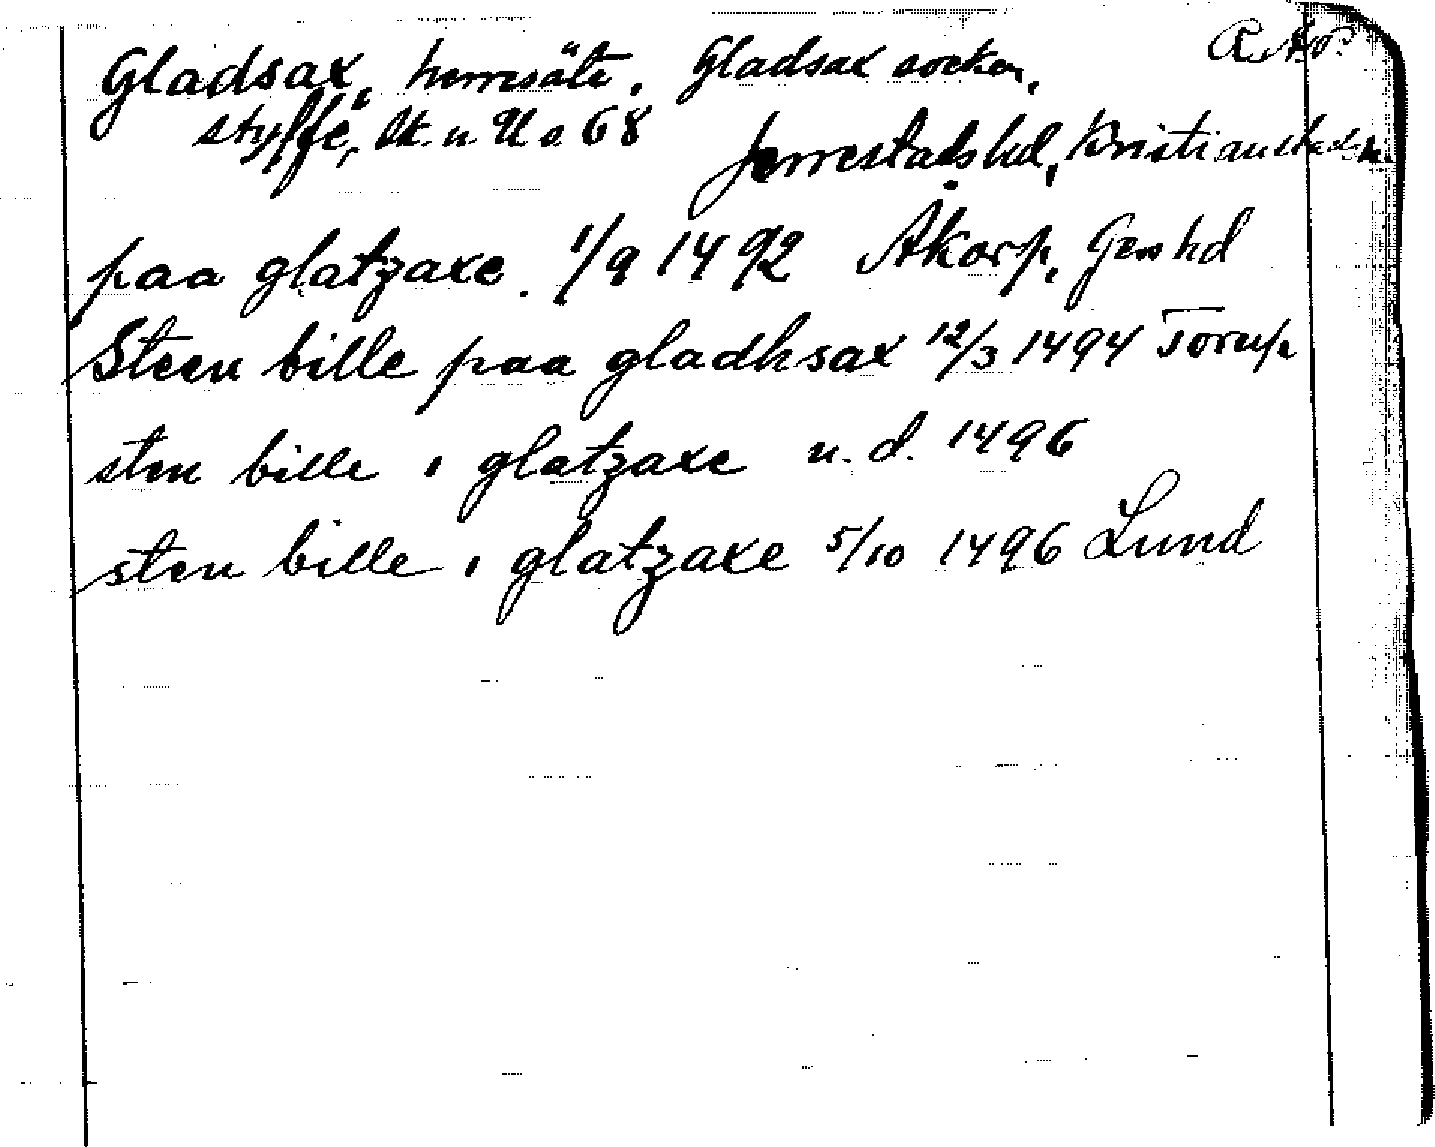 Gladsax, herresäte. Gladsax socken,
Styffe, Sk. u. U s 68 Jerrestads hd, Kristianstads l.
paa glatzaxe. 1/9 1492 Åkarp, Gers hd
Steen bille paa gladhsax 12/3 1494 Torup
sten bille i glatzaxe u. d. 1496
sten bille i glatzaxe 5/10 1496 Lund